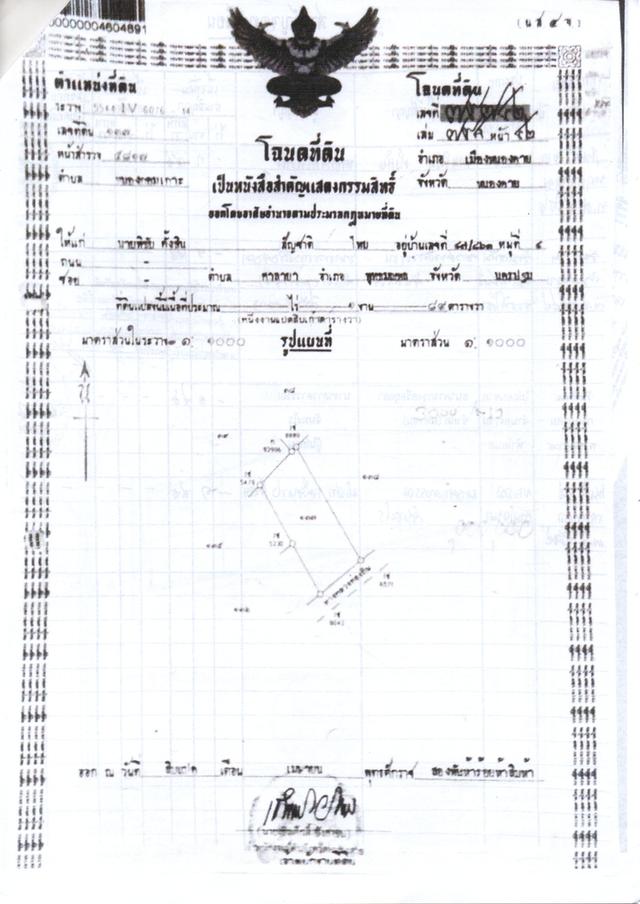 00000004604891
(น.ส. ๔ จ)
ตำแหน่งที่ดิน
โฉนดที่ดิน
ระวาง 5544 IV 6076
เลขที่
เลขที่ดิน ๑๓๗
เล่ม หน้า ๔๒
หน้าสำรวจ ๕๘๑๗
อำเภอ เมืองหนองคาย
ตำบล
จังหวัด หนองคาย
โฉนดที่ดิน
เป็นหนังสือสำคัญแสดงกรรมสิทธิ์
ออกโดยอาศัยอำนาจตามประมวลกฎหมายที่ดิน
ให้แก่ นายพิชัย ตั้งสิน สัญชาติ ไทย อยู่บ้านเลขที่ หมู่ที่ ๔
ถนน -
ซอย - ตำบล ศาลายา อำเภอ พุทธมณฑล จังหวัด นครปฐม
ที่ดินแปลงนี้มีเนื้อที่ประมาณ - ไร่ ๑ งาน ๘๙ ตารางวา
(หนึ่งงานแปดสิบเก้าตารางวา)
มาตราส่วนในระวาง ๑ : ๑๐๐๐
รูปแผนที่
มาตราส่วน ๑ : ๑๐๐๐
น
๓๘
๓๙
ก
92906
๑๓๘
5479
๑๓๗
5230
๑๓๕
ทางหลวงท้องถิ่น
ออก ณ วันที่ สิบแปด เดือน เมษายน พุทธศักราช สองพันห้าร้อยห้าสิบห้า
เจ้าพนักงานที่ดิน